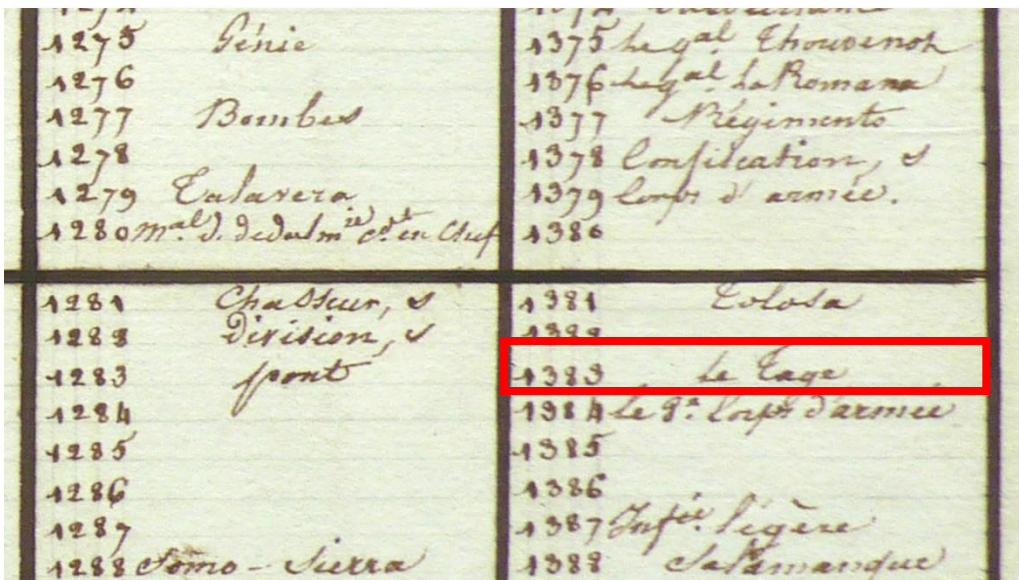 1275 Génie
1276
1277 Bombes
1278
1279 Talavera
1280 Mal D. de dalmie Cdt en Chef
1281 Chasseur, s
1282 division, s
1283 pont
1284
1285
1286
1287
1288 Somo-Sierra
1375 Le gal Thouvenot
1376 Le gal La Romana
1377 Régiments
1378 Confiscation, s
1379 Corps d'armée.
1380
1381 Tolosa
1382
1383 Le Tage
1384 Le Corps d'armée
1385
1386
1387 Infie légère
1388 Salamanque